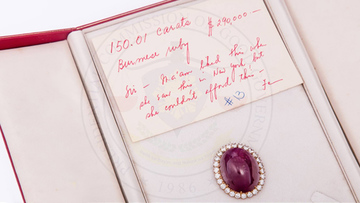 150.01 carats $290,000—
Burmese ruby
Sir — Ma'am liked this when
she saw this in New York, but
she couldn't afford then —
#3
1986